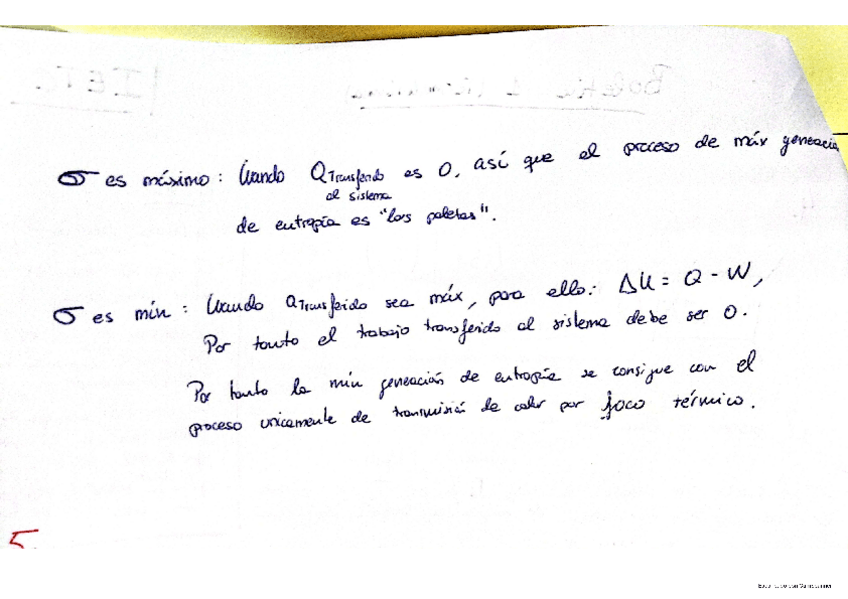 σ es máximo: Cuando Q Transferido es 0, así que el proceso de máx generació
al sistema
de entropía es "las paletas".
σ es mín: Cuando Q Transferido sea máx, para ello: ΔU = Q - W,
Por tanto el trabajo transferido al sistema debe ser 0.
Por tanto la mín generación de entropía se consigue con el
proceso unicamente de transmisión de calor por foco térmico.
5